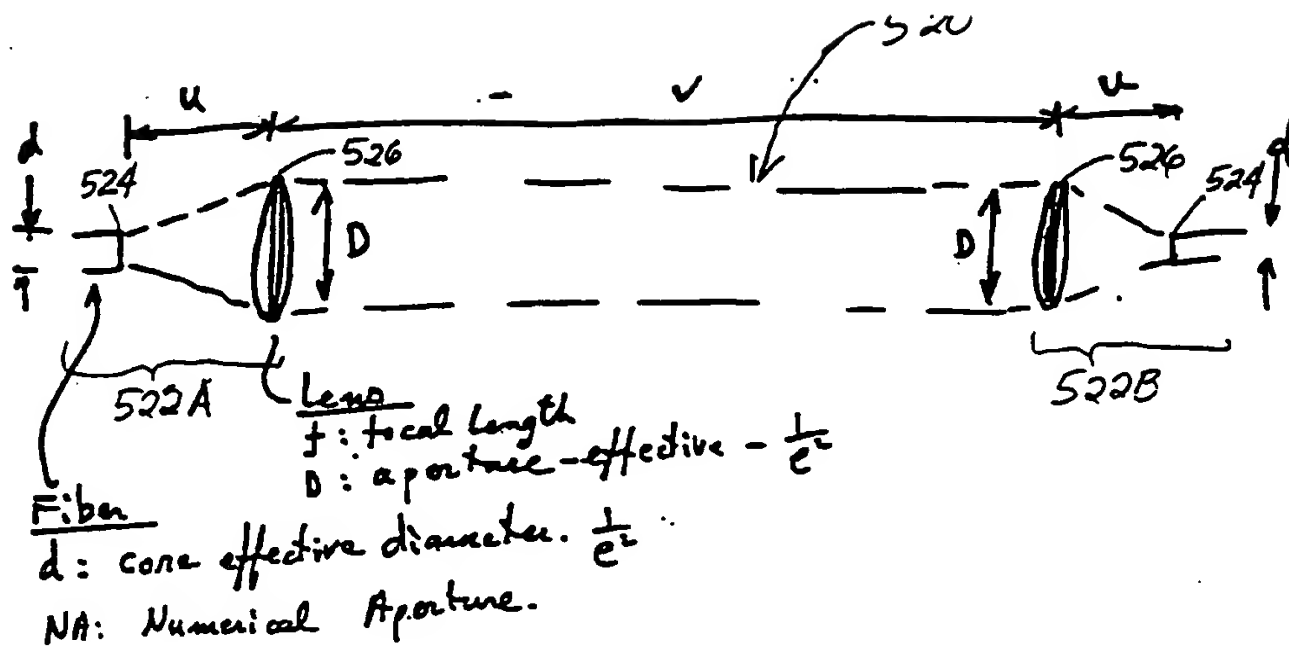 520
u - v u
d 524 526 D D 526 524 d
522A 522B
Lens
f: focal length
D: aperture-effective - 1/e²
Fiber
d: core effective diameter. 1/e²
NA: Numerical Aperture.